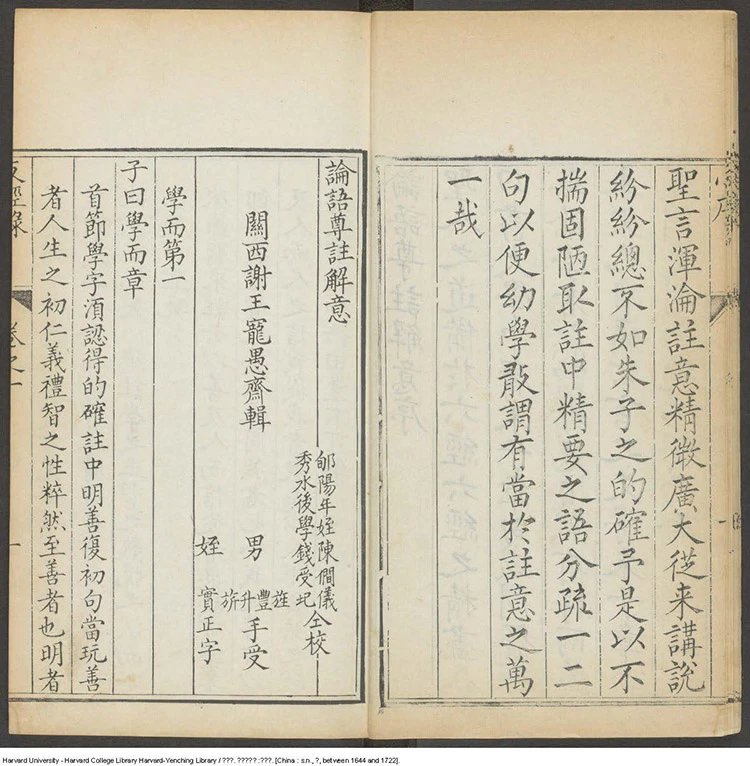 聖言渾淪註意精微廣大從来講說
紛紛總不如朱子之的確予是以不
揣固陋取註中精要之語分疏一二
句以便幼學敢謂有當於註意之萬
一哉
論語尊註解意
郇陽年姪陳僴儀
秀水後學錢受圯
仝校
關西謝王寵愚齋輯
男 旌豐升旂 手受
姪 實正字
學而第一
子曰學而章
首節學字湏認得的確註中明善復初句當玩善
者人生之初仁義禮智之性粹然至善者也明者
卷之一 一
Harvard University - Harvard College Library Harvard-Yenching Library / ???. ????? :???. [China : s.n., ?, between 1644 and 1722].